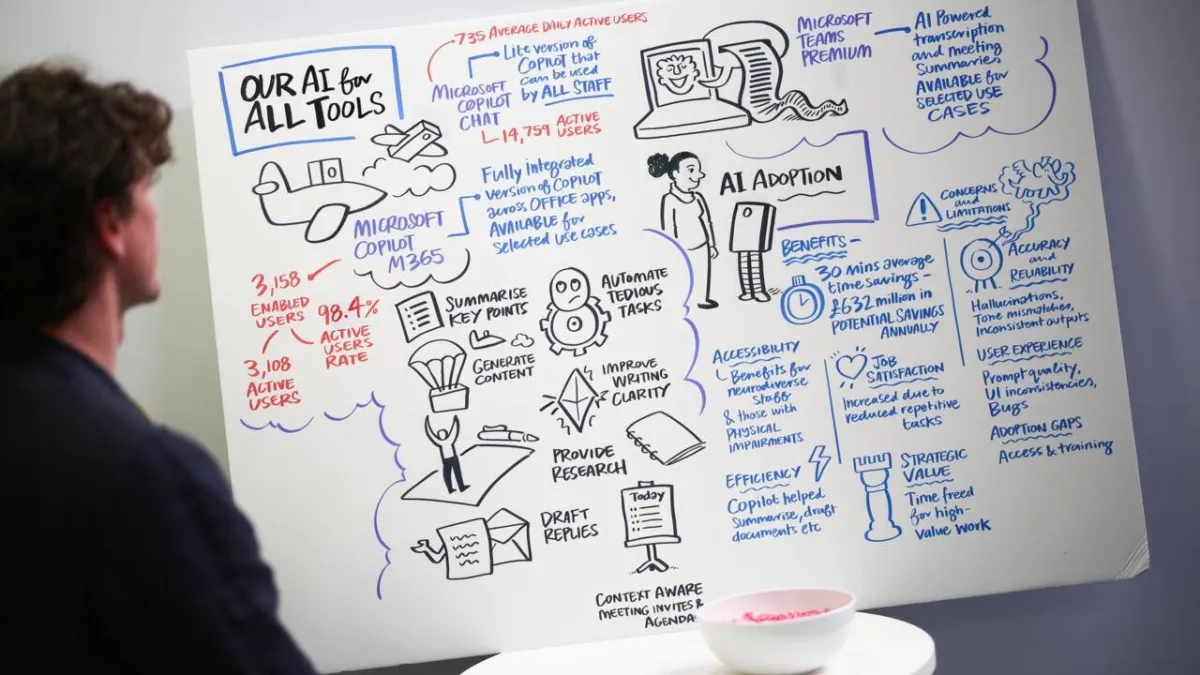 OUR AI for
ALL TOOLS
735 AVERAGE DAILY ACTIVE USERS
MICROSOFT
COPILOT
CHAT
Lite version of
COPILOT that
can be used
by ALL STAFF
14,759 ACTIVE
USERS
MICROSOFT
COPILOT
M365
Fully integrated
version of COPILOT
across OFFICE apps,
AVAILABLE for
selected use cases
3,158
ENABLED
USERS
98.4%
ACTIVE
USERS
RATE
3,108
ACTIVE
USERS
SUMMARISE
KEY POINTS
AUTOMATE
TEDIOUS
TASKS
GENERATE
CONTENT
IMPROVE
WRITING
CLARITY
PROVIDE
RESEARCH
DRAFT
REPLIES
Today
CONTEXT AWARE
MEETING INVITES &
AGENDA
MICROSOFT
TEAMS
PREMIUM
AI Powered
transcription
and meeting
Summaries
AVAILABLE for
SELECTED USE
CASES
AI ADOPTION
BENEFITS –
30 mins average
time savings –
£632 million in
POTENTIAL SAVINGS
ANNUALLY
ACCESSIBILITY
Benefits for
neurodiverse
staff
& those with
PHYSICAL
IMPAIRMENTS
JOB
SATISFACTION
Increased due to
reduced repetitive
tasks
EFFICIENCY
Copilot helped
summarise, draft
documents etc
STRATEGIC
VALUE
Time freed
for high-
value work
CONCERNS
and
LIMITATIONS
ACCURACY
and
RELIABILITY
Hallucinations,
Tone mismatches,
Inconsistent outputs
USER EXPERIENCE
Prompt quality,
UI inconsistencies,
Bugs
ADOPTION GAPS
Access & training